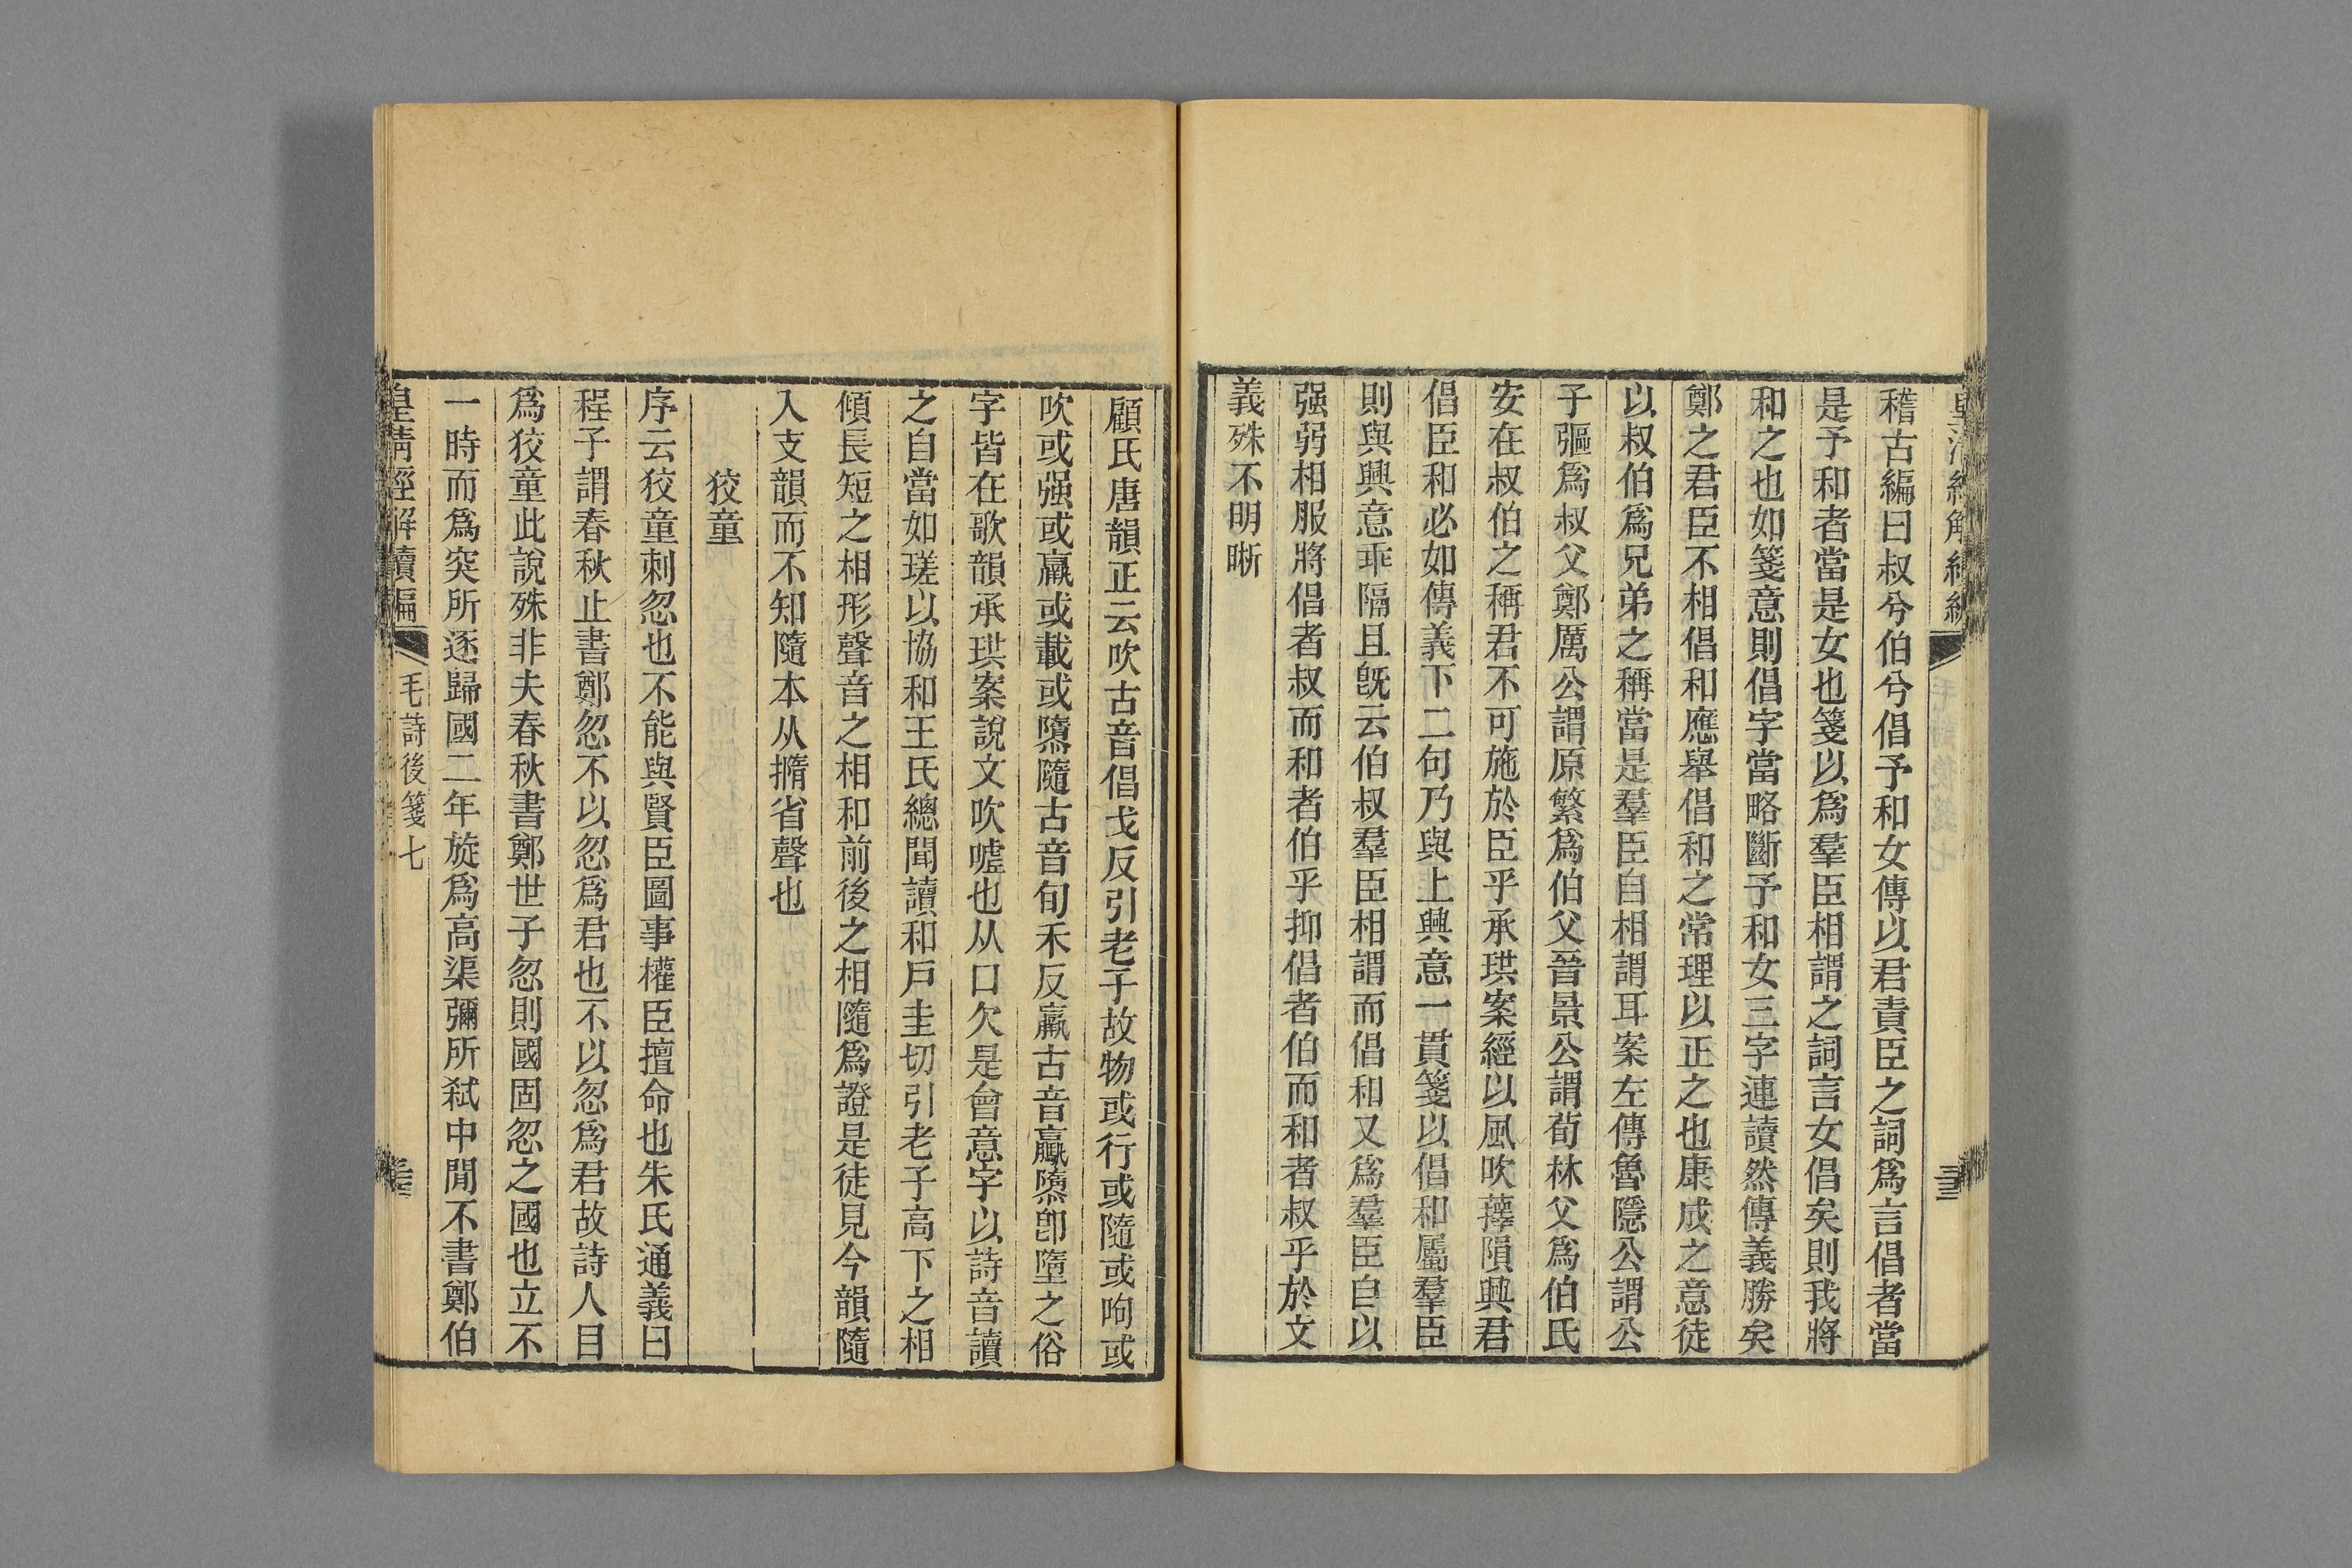 稽古編曰叔兮伯兮倡予和女傳以君責臣之詞爲言倡者當
是予和者當是女也箋以爲羣臣相謂之詞言女倡矣則我將
和之也如箋意則倡字當略斷予和女三字連讀然傳義勝矣
鄭之君臣不相倡和應舉倡和之常理以正之也康成之意徒
以叔伯爲兄弟之稱當是羣臣自相謂耳案左傳魯隱公謂公
子彄爲叔父鄭厲公謂原繁爲伯父晉景公謂荀林父爲伯氏
安在叔伯之稱君不可施於臣乎承珙案經以風吹蘀隕興君
倡臣和必如傳義下二句乃與上興意一貫箋以倡和屬羣臣
則與興意乖隔且既云伯叔羣臣相謂而倡和又爲羣臣自以
强弱相服將倡者叔而和者伯乎抑倡者伯而和者叔乎於文
義殊不明晰
顧氏唐韻正云吹古音倡戈反引老子故物或行或隨或呴或
吹或强或羸或載或隳隨古音旬禾反羸古音臝隳卽墮之俗
字皆在歌韻承珙案說文吹噓也从口欠是會意字以詩音讀
之自當如瑳以協和王氏總聞讀和戶圭切引老子高下之相
傾長短之相形聲音之相和前後之相隨爲證是徒見今韻隨
入支韻而不知隨本从㨊省聲也
狡童
序云狡童刺忽也不能與賢臣圖事權臣擅命也朱氏通義曰
程子謂春秋止書鄭忽不以忽爲君也不以忽爲君故詩人目
爲狡童此說殊非夫春秋書鄭世子忽則國固忽之國也立不
一時而爲突所逐歸國二年旋爲高渠彌所弑中閒不書鄭伯
皇清經解續編
毛詩後箋七